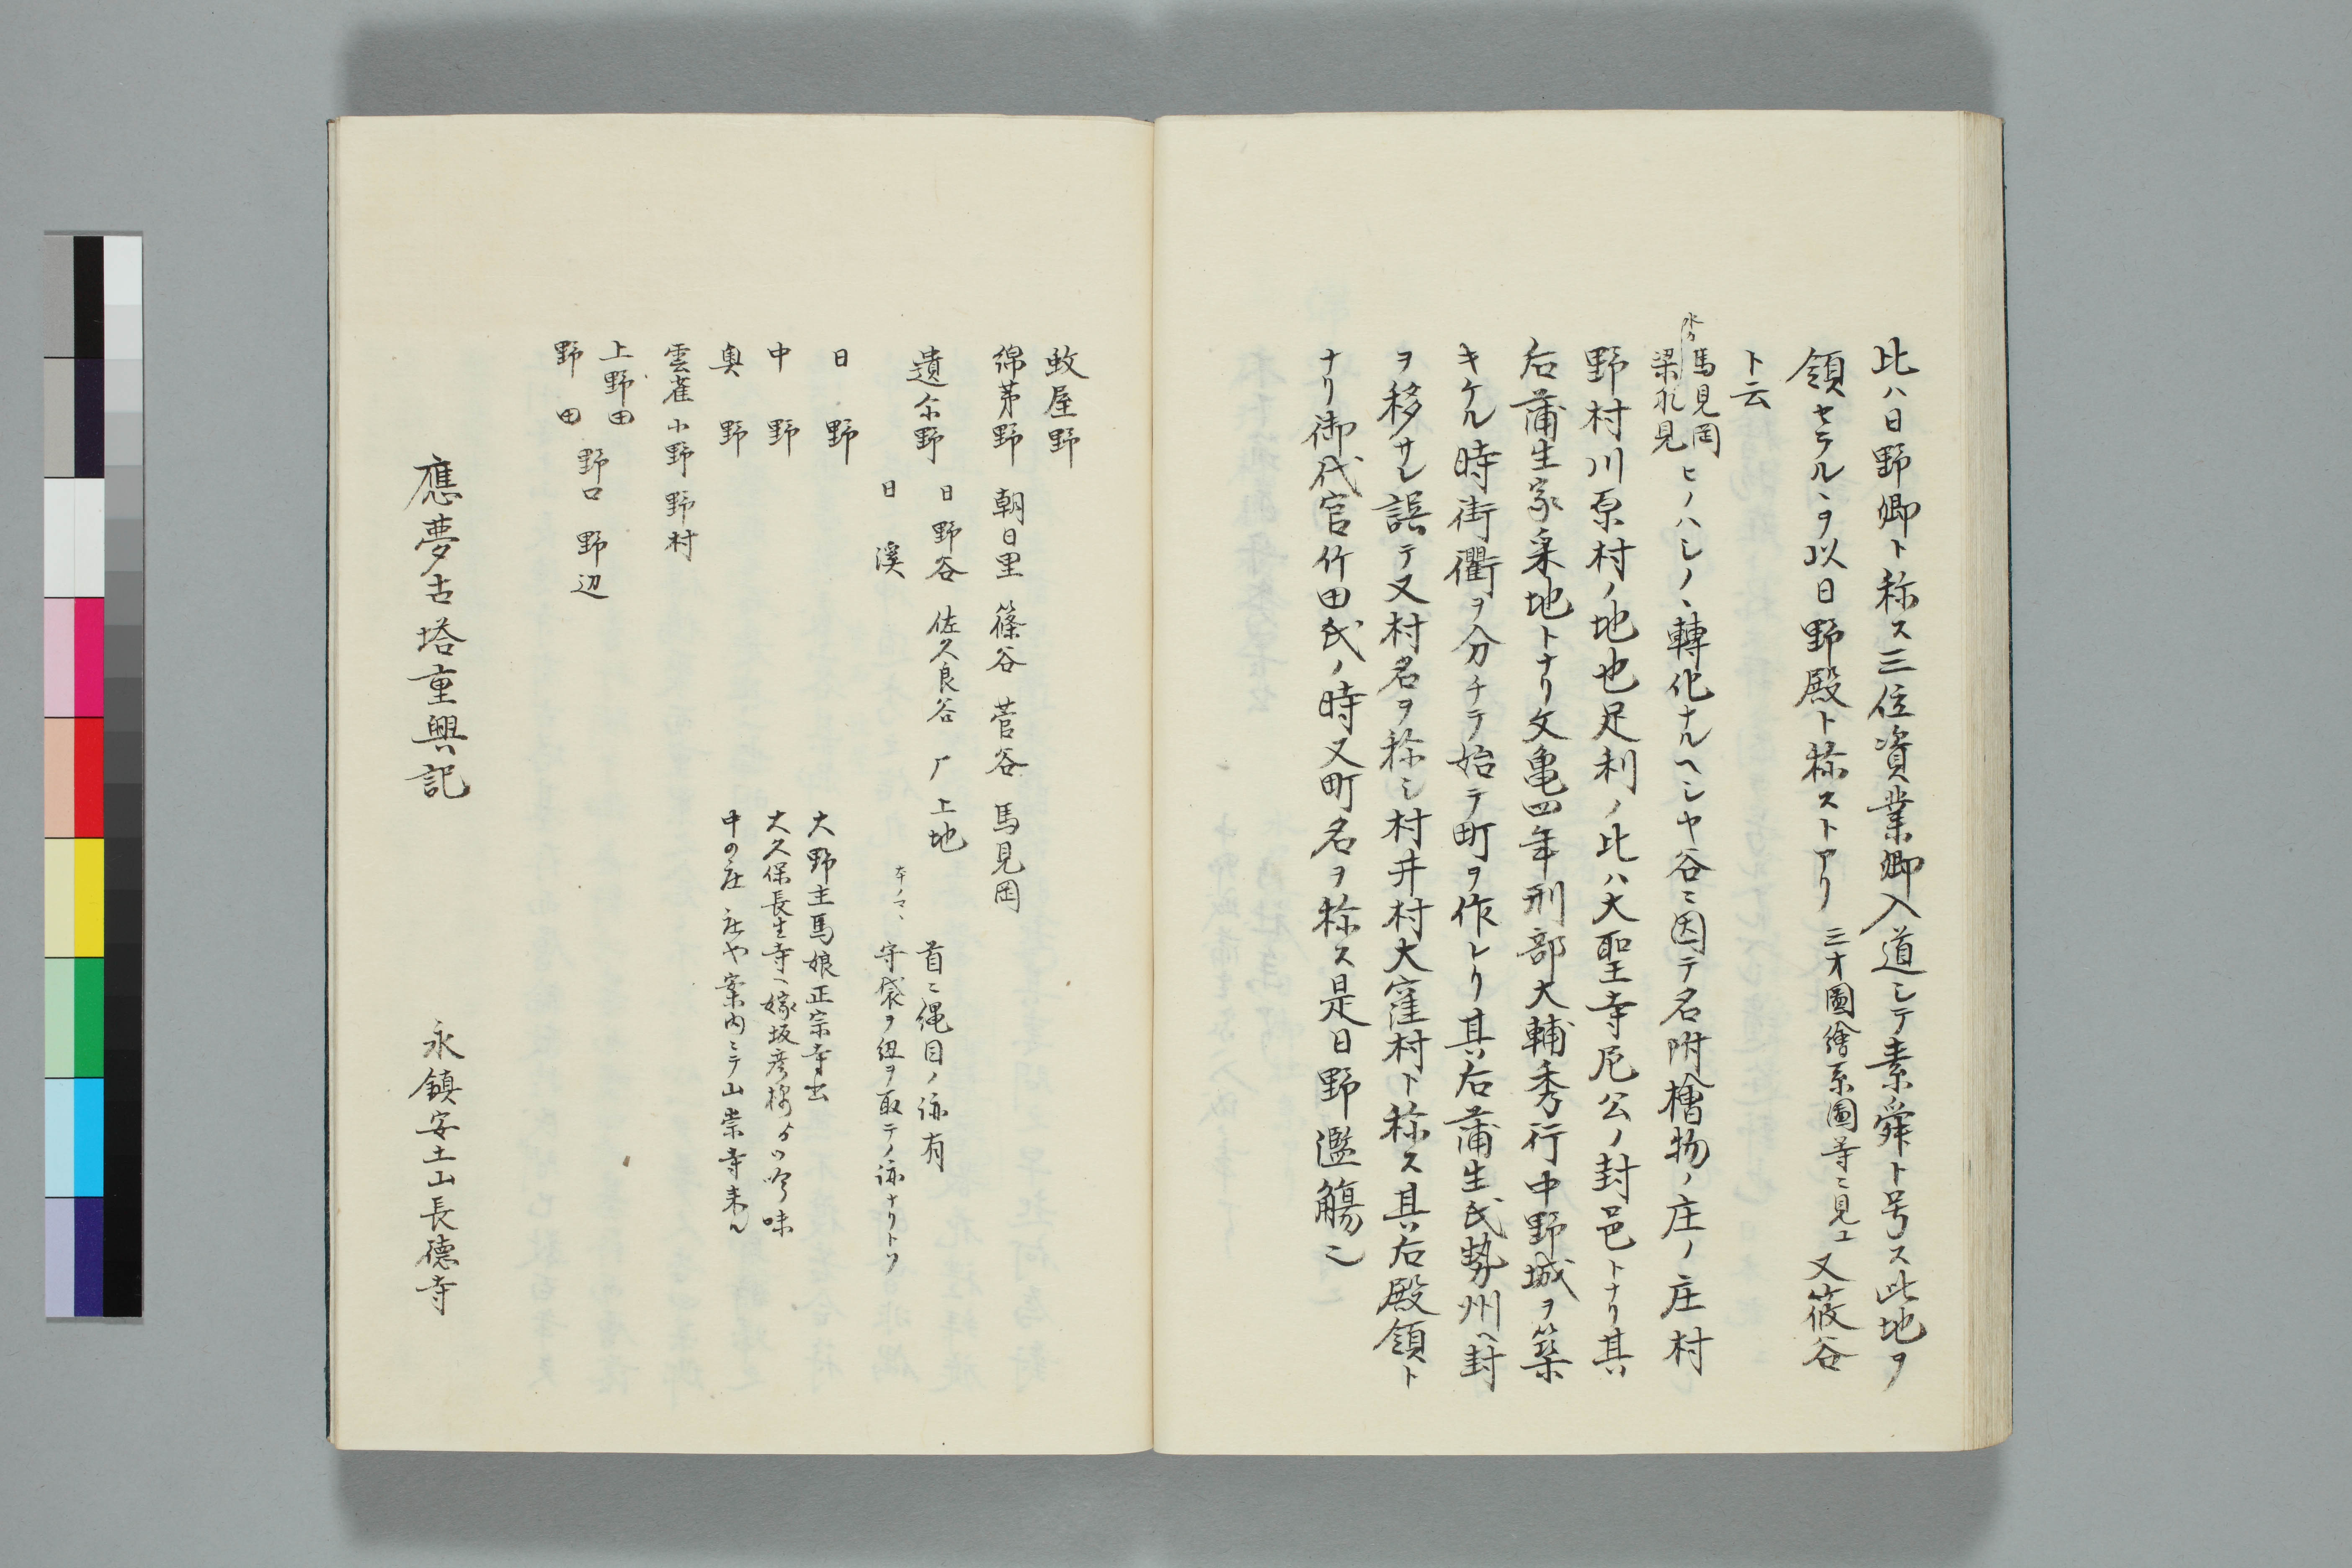 比ハ日野郷ト称ス三位資業卿入道シテ素舜ト号ス此地ヲ
領セラルヽヲ以日野殿ト称ストアリ 三才圖繪系圖等ニ見エ 又筱谷
ト云
水ケ
馬見岡
梁礼見
ヒノハシノヽ轉化ナルヘシヤ谷ニ因テ名附檜物ノ庄ノ庄村
野村川原村ノ地也足利ノ比ハ大聖寺尼公ノ封邑トナリ其
后蒲生家采地トナリ文亀四年刑部大輔秀行中野城ヲ築
キケル時街衢ヲ分チテ始テ町ヲ作レリ其后蒲生氏勢州ヘ封
ヲ移サレ誤テ又村名ヲ称シ村井村大窪村ト称ス其后殿領ト
ナリ御代官竹田氏ノ時又町名ヲ称ス是日野濫觴也
蚊屋野
綿茅野 朝日里 篠谷 菅谷 馬見岡
遺尓野 日野谷 佐久良谷 上地
日溪
本ノマヽ
首ニ縄目ノ 有
守袋ヲ紐ヲ取テノ ナリトソ
日野
中野
奥野
大野主馬娘正宗寺出
大久保長生寺ヘ嫁坂彦 吟味
中の庄 庄や案内ニテ山崇寺来ル
雲雀 小野 野村
上野田
野田
野口 野辺
應夢古塔重興記 永鎮安土山長德寺